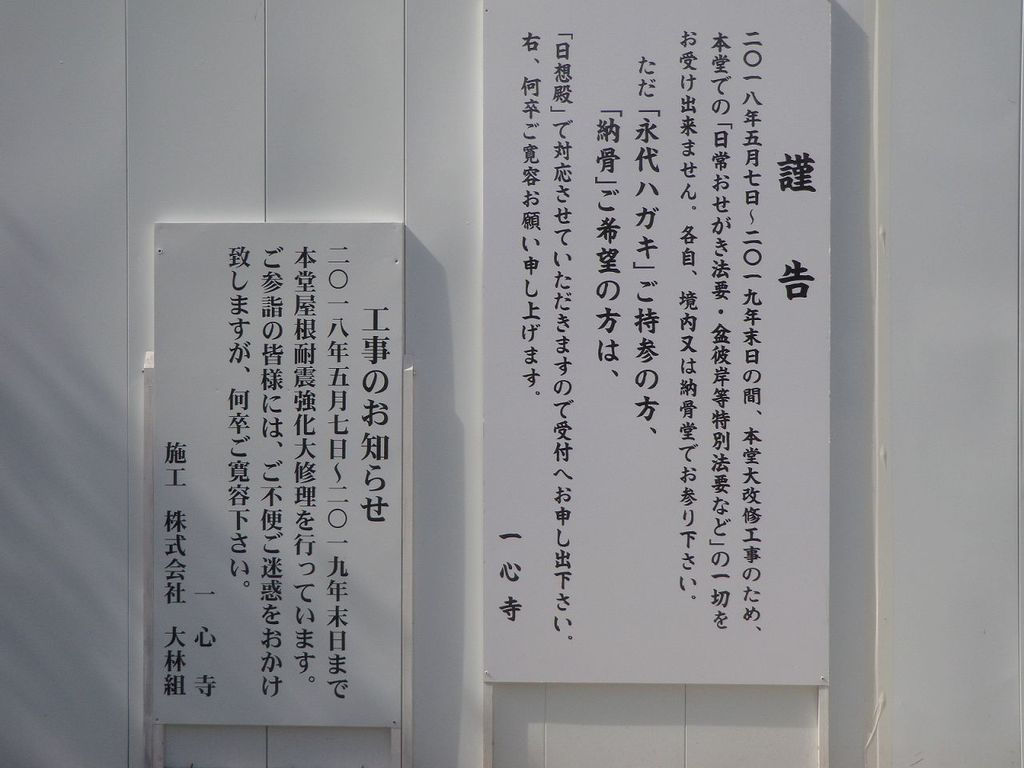 謹告
二〇一八年五月七日～二〇一九年末日の間、本堂大改修工事のため、
本堂での「日常おせがき法要・盆彼岸等特別法要など」の一切を
お受け出来ません。各自、境内又は納骨堂でお参り下さい。
ただ「永代ハガキ」ご持参の方、
「納骨」ご希望の方は、
「日想殿」で対応させていただきますので受付へお申し出下さい。
右、何卒ご寛容お願い申し上げます。
一心寺
工事のお知らせ
二〇一八年五月七日～二〇一九年末日まで
本堂屋根耐震強化大修理を行っています。
ご参詣の皆様には、ご不便ご迷惑をおかけ
致しますが、何卒ご寛容下さい。
一心寺
施工 株式会社 大林組